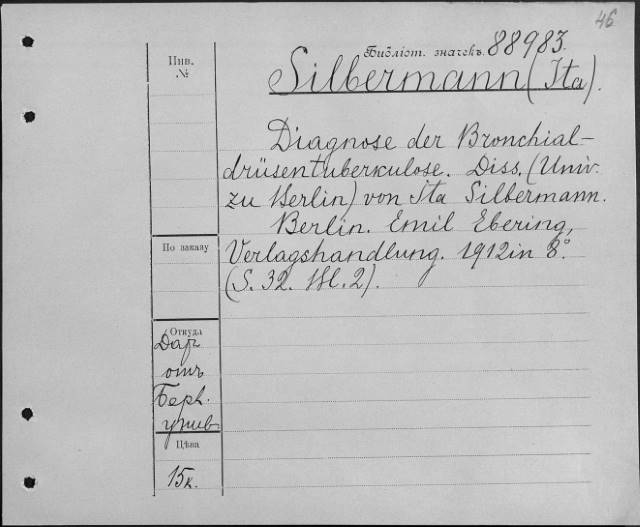 46
Библіот. значекъ. 88983.
Инв. №
Silbermann (Ita).
Diagnose der Bronchial-
drüsentuberkulose. Diss. (Univ.
zu Berlin) von Ita Silbermann.
Berlin. Emil Ebering,
Verlagshandlung. 1912 in 8°.
(S. 32. Bl. 2).
По заказу
Откуда
Даръ
отъ
Берл.
унив.
Цѣна
15к.